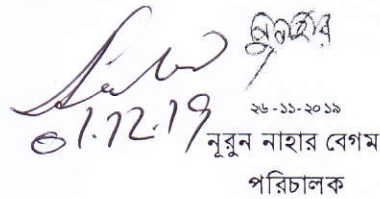 নুনাহার
01.12.19
২৬-১১-২০১৯
নূরুন নাহার বেগম
পরিচালক